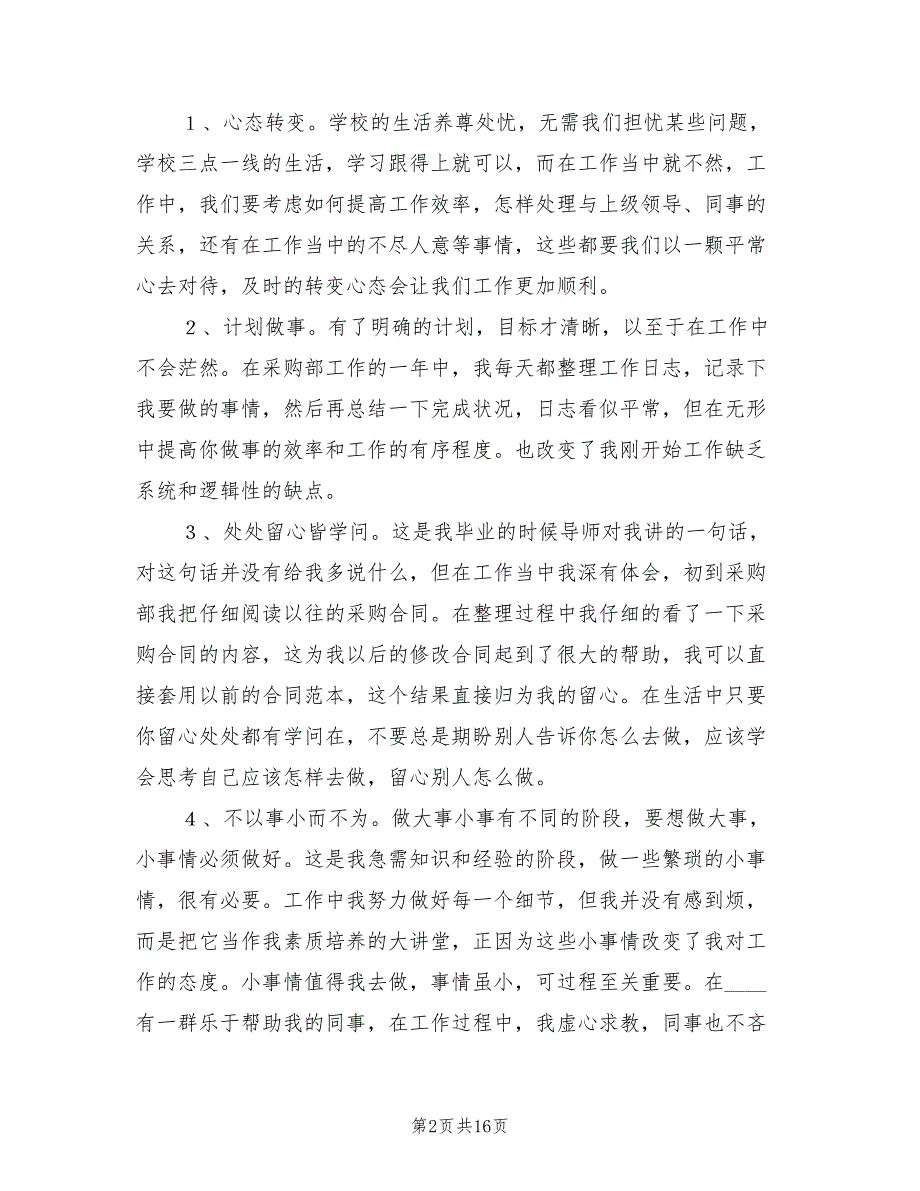 １、心态转变。学校的生活养尊处忧，无需我们担忧某些问题，
学校三点一线的生活，学习跟得上就可以，而在工作当中就不然，工
作中，我们要考虑如何提高工作效率，怎样处理与上级领导、同事的
关系，还有在工作当中的不尽人意等事情，这些都要我们以一颗平常
心去对待，及时的转变心态会让我们工作更加顺利。
２、计划做事。有了明确的计划，目标才清晰，以至于在工作中
不会茫然。在采购部工作的一年中，我每天都整理工作日志，记录下
我要做的事情，然后再总结一下完成状况，日志看似平常，但在无形
中提高你做事的效率和工作的有序程度。也改变了我刚开始工作缺乏
系统和逻辑性的缺点。
３、处处留心皆学问。这是我毕业的时候导师对我讲的一句话，
对这句话并没有给我多说什么，但在工作当中我深有体会，初到采购
部我把仔细阅读以往的采购合同。在整理过程中我仔细的看了一下采
购合同的内容，这为我以后的修改合同起到了很大的帮助，我可以直
接套用以前的合同范本，这个结果直接归为我的留心。在生活中只要
你留心处处都有学问在，不要总是期盼别人告诉你怎么去做，应该学
会思考自己应该怎样去做，留心别人怎么做。
４、不以事小而不为。做大事小事有不同的阶段，要想做大事，
小事情必须做好。这是我急需知识和经验的阶段，做一些繁琐的小事
情，很有必要。工作中我努力做好每一个细节，但我并没有感到烦，
而是把它当作我素质培养的大讲堂，正因为这些小事情改变了我对工
作的态度。小事情值得我去做，事情虽小，可过程至关重要。在____
有一群乐于帮助我的同事，在工作过程中，我虚心求教，同事也不吝
第2页共16页